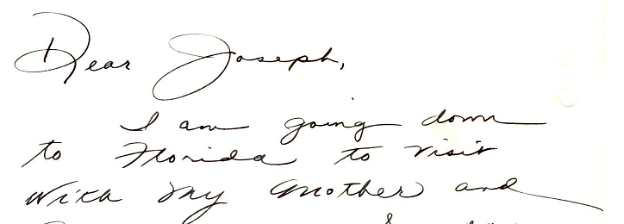 Dear Joseph,
I am going down
to Florida to visit
with my mother and